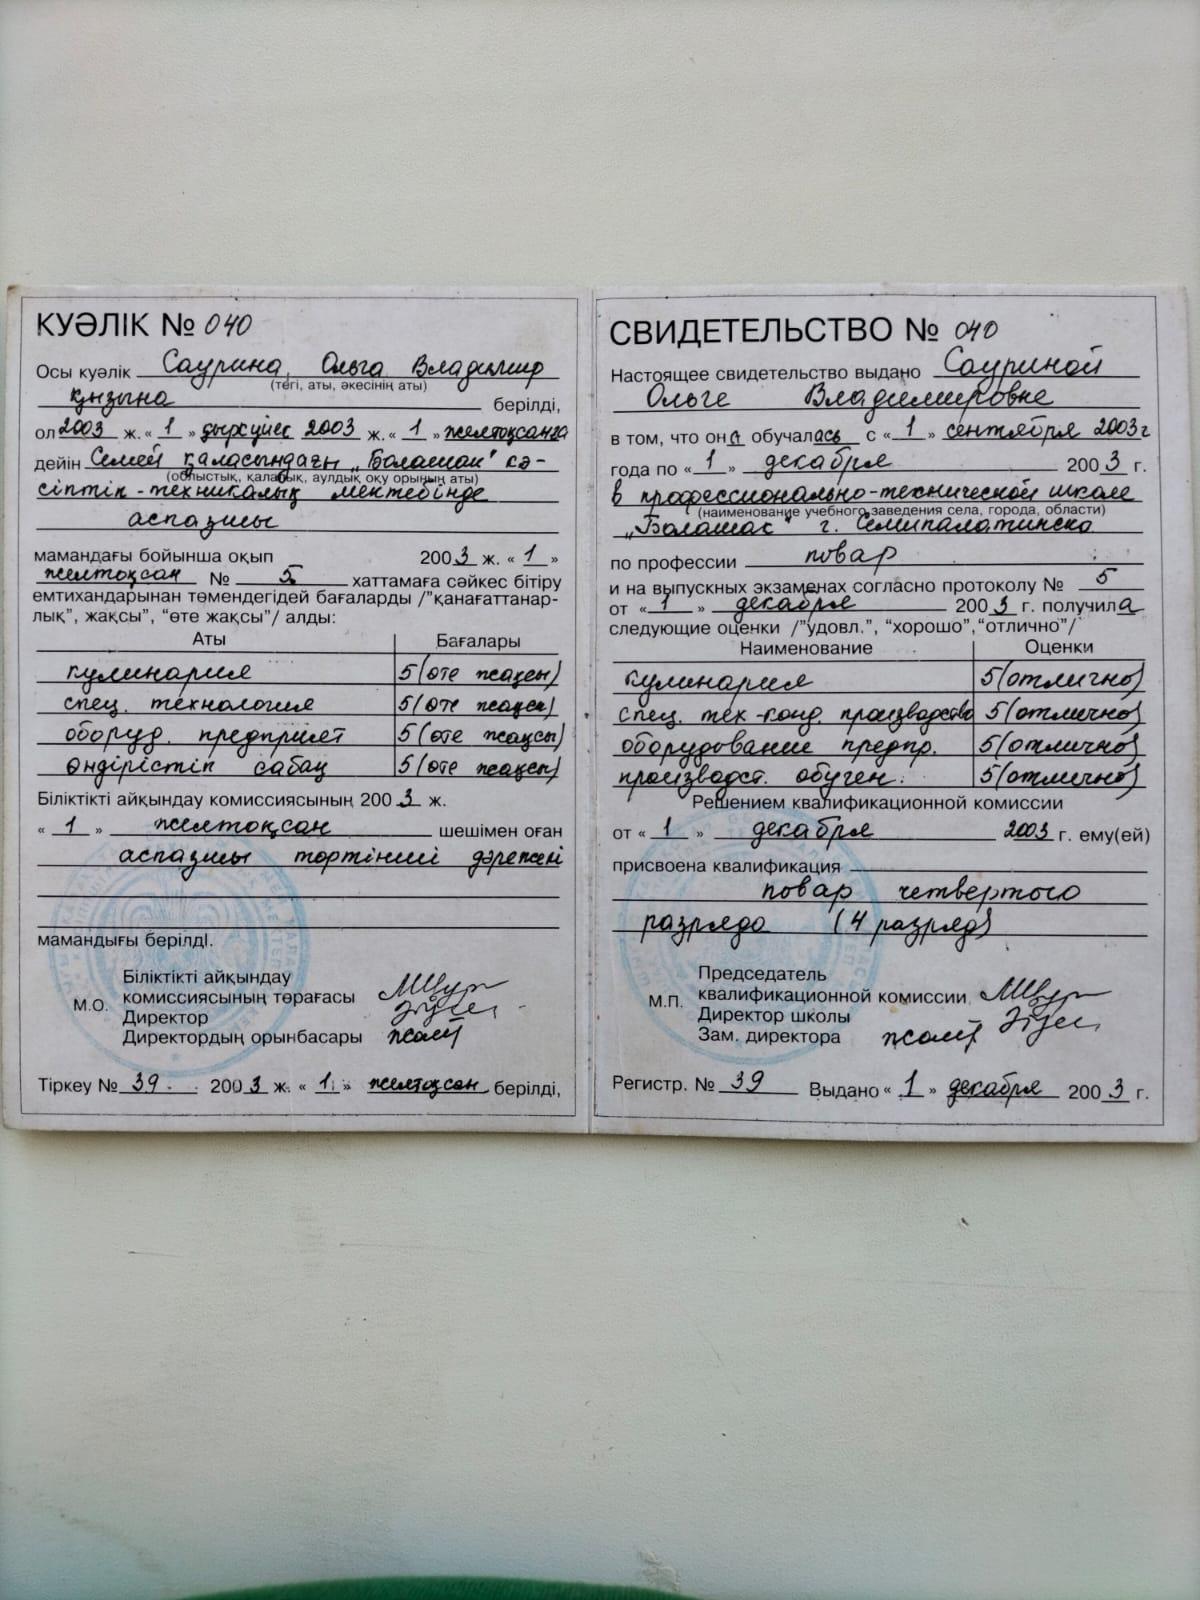 КУӘЛІК № 040
Осы куәлік Саурина Ольга Владимир
(тегі, аты, әкесінің аты)
қызына берілді,
ол 2003 ж. « 1 » дыркүйек 2003 ж. « 1 » желтоқсанға
дейін Семей қаласындағы „Болашак" кә-
(облыстық, қалалық, аулдық оқу орының аты)
сіптік-техникалық мектебінде
аспазшы
мамандағы бойынша оқып 2003 ж. « 1 »
желтоқсан № 5 хаттамаға сәйкес бітіру
емтихандарынан төмендегідей бағаларды /"қанағаттанар-
лық", жақсы", "өте жақсы"/ алды:
Аты Бағалары
кулинария 5 (өте жақсы)
спец. технология 5 (өте жақсы)
оборуд. предприят 5 (өте жақсы)
өндірістік сабақ 5 (өте жақсы)
Біліктікті айқындау комиссиясының 2003 ж.
« 1 » желтоқсан шешімен оған
аспазшы төртінші дәрежелі
мамандығы берілді.
Біліктікті айқындау
комиссиясының төрағасы
М.О.
Директор
Директордың орынбасары
Тіркеу № 39 2003 ж. « 1 » желтоқсан берілді,
СВИДЕТЕЛЬСТВО № 040
Настоящее свидетельство выдано Сауриной
Ольге Владимировне
в том, что она обучалась с « 1 » сентября 2003 г
года по « 1 » декабря 2003 г.
в профессионально-технической школе
(наименование учебного заведения села, города, области)
„Болашак" г. Семипалатинска
по профессии повар
и на выпускных экзаменах согласно протоколу № 5
от « 1 » декабря 2003 г. получила
следующие оценки /"удовл.", "хорошо","отлично"/
Наименование Оценки
кулинария 5 (отлично)
спец. тех-конд. производство 5 (отлично)
оборудование предпр. 5 (отлично)
производст. обучен. 5 (отлично)
Решением квалификационной комиссии
от « 1 » декабря 2003 г. ему(ей)
присвоена квалификация
повар четвертого
разряда (4 разряд)
Председатель
квалификационной комиссии
М.П.
Директор школы
Зам. директора
Регистр. № 39 Выдано « 1 » декабря 2003 г.